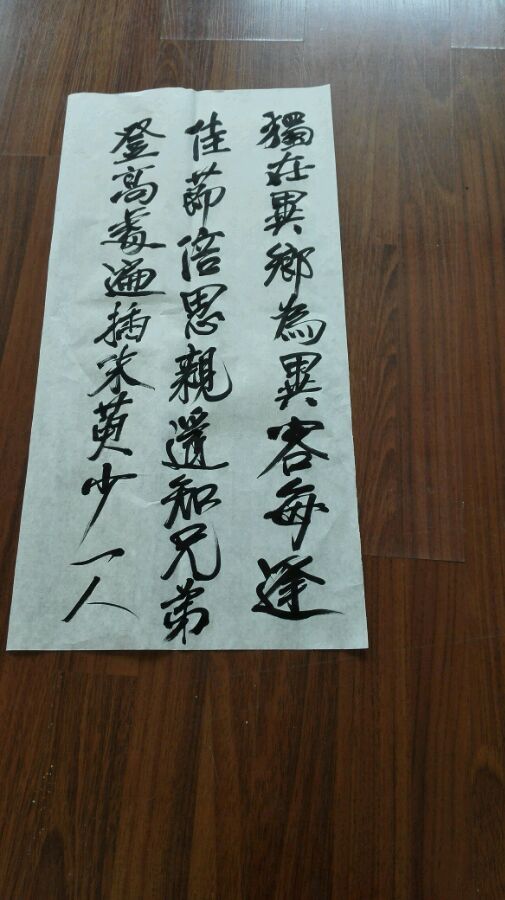 獨在異鄉為異客每逢
佳節倍思親遥知兄弟
登高處遍插朱萸少一人